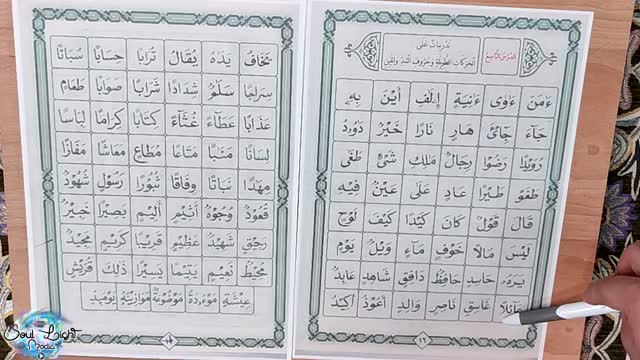 الدَّرْسُ التَّاسِعُ
تَدْرِيبَاتٌ عَلَى
الحَرَكَاتِ الطَّوِيلَةِ وَحُرُوفِ المَدِّ وَاللِّينِ
ءَٰمَنَ ءَاوٰى ءَٰنِيَةٍ إِۦلَٰفِ أَيْنَ بِهِۦ
جَآءَ جِآىْءَ هَارٍ نَارًا خَيْرٌ دَاوُۥدُ
رُوَيْدًا رَضُوْا رِجَالٌ مَلِكِ شَىْءٍ طَغٰى
طَغَوْ طَيْرًا عَادٍ عَلٰى عَيْنٌ فِيْهِ
قَالَ قَوْلٌ كَانَ كَيْدًا كَيْفَ لَوْحٍ
لَيْسَ مَالًا خَوْفٍ مَآءٍ وَيْلٌ يَوْمَ
يَرَهُۥ حَاسِدٍ حَافِظٌ دَافِقٍ شَاهِدٍ عَابِدٌ
عَآئِلًا غَاسِقٍ نَاصِرٍ وَالِدٍ أَعُوْذُ أَكِيْدُ
١٦
يَخَافُ يَدَٰهُ يُقَالُ تُرَابًا حِسَابًا سُبَاتًا
سِرَاجًا سَلَٰمٌ شِدَادًا شَرَابًا صَوَابًا طَعَامٍ
عَذَابًا عَطَآءً غُثَآءً كِتَابًا كِرَامًا لِبَاسًا
لِسَانًا مَـَٔابًا مَتَاعًا مُطَاعٍ مَعَاشًا مَفَازًا
مِهَٰدًا نَبَاتًا وِفَاقًا ثُبُوْرًا رَسُوْلٍ شُهُوْدٌ
قُعُوْدٌ وُجُوْهٌ أَثِيْمٍ أَلِيْمٍ بَصِيْرًا خَبِيْرٌ
رَحِيْقٍ شَهِيْدٌ عَظِيْمٍ قَرِيْبًا كَرِيْمٍ مَجِيْدٌ
مُحِيْطٌ نَعِيْمٍ يَتِيْمًا يَسِيْرًا ذَٰلِكَ قُرَيْشٍ
عِيْشَةٍ مَوْءُۥدَةُ مَوْضُوْعَةٌ مَوَازِيْنُهُ يَوْمَئِذٍ
١٧
Soul Light
Media